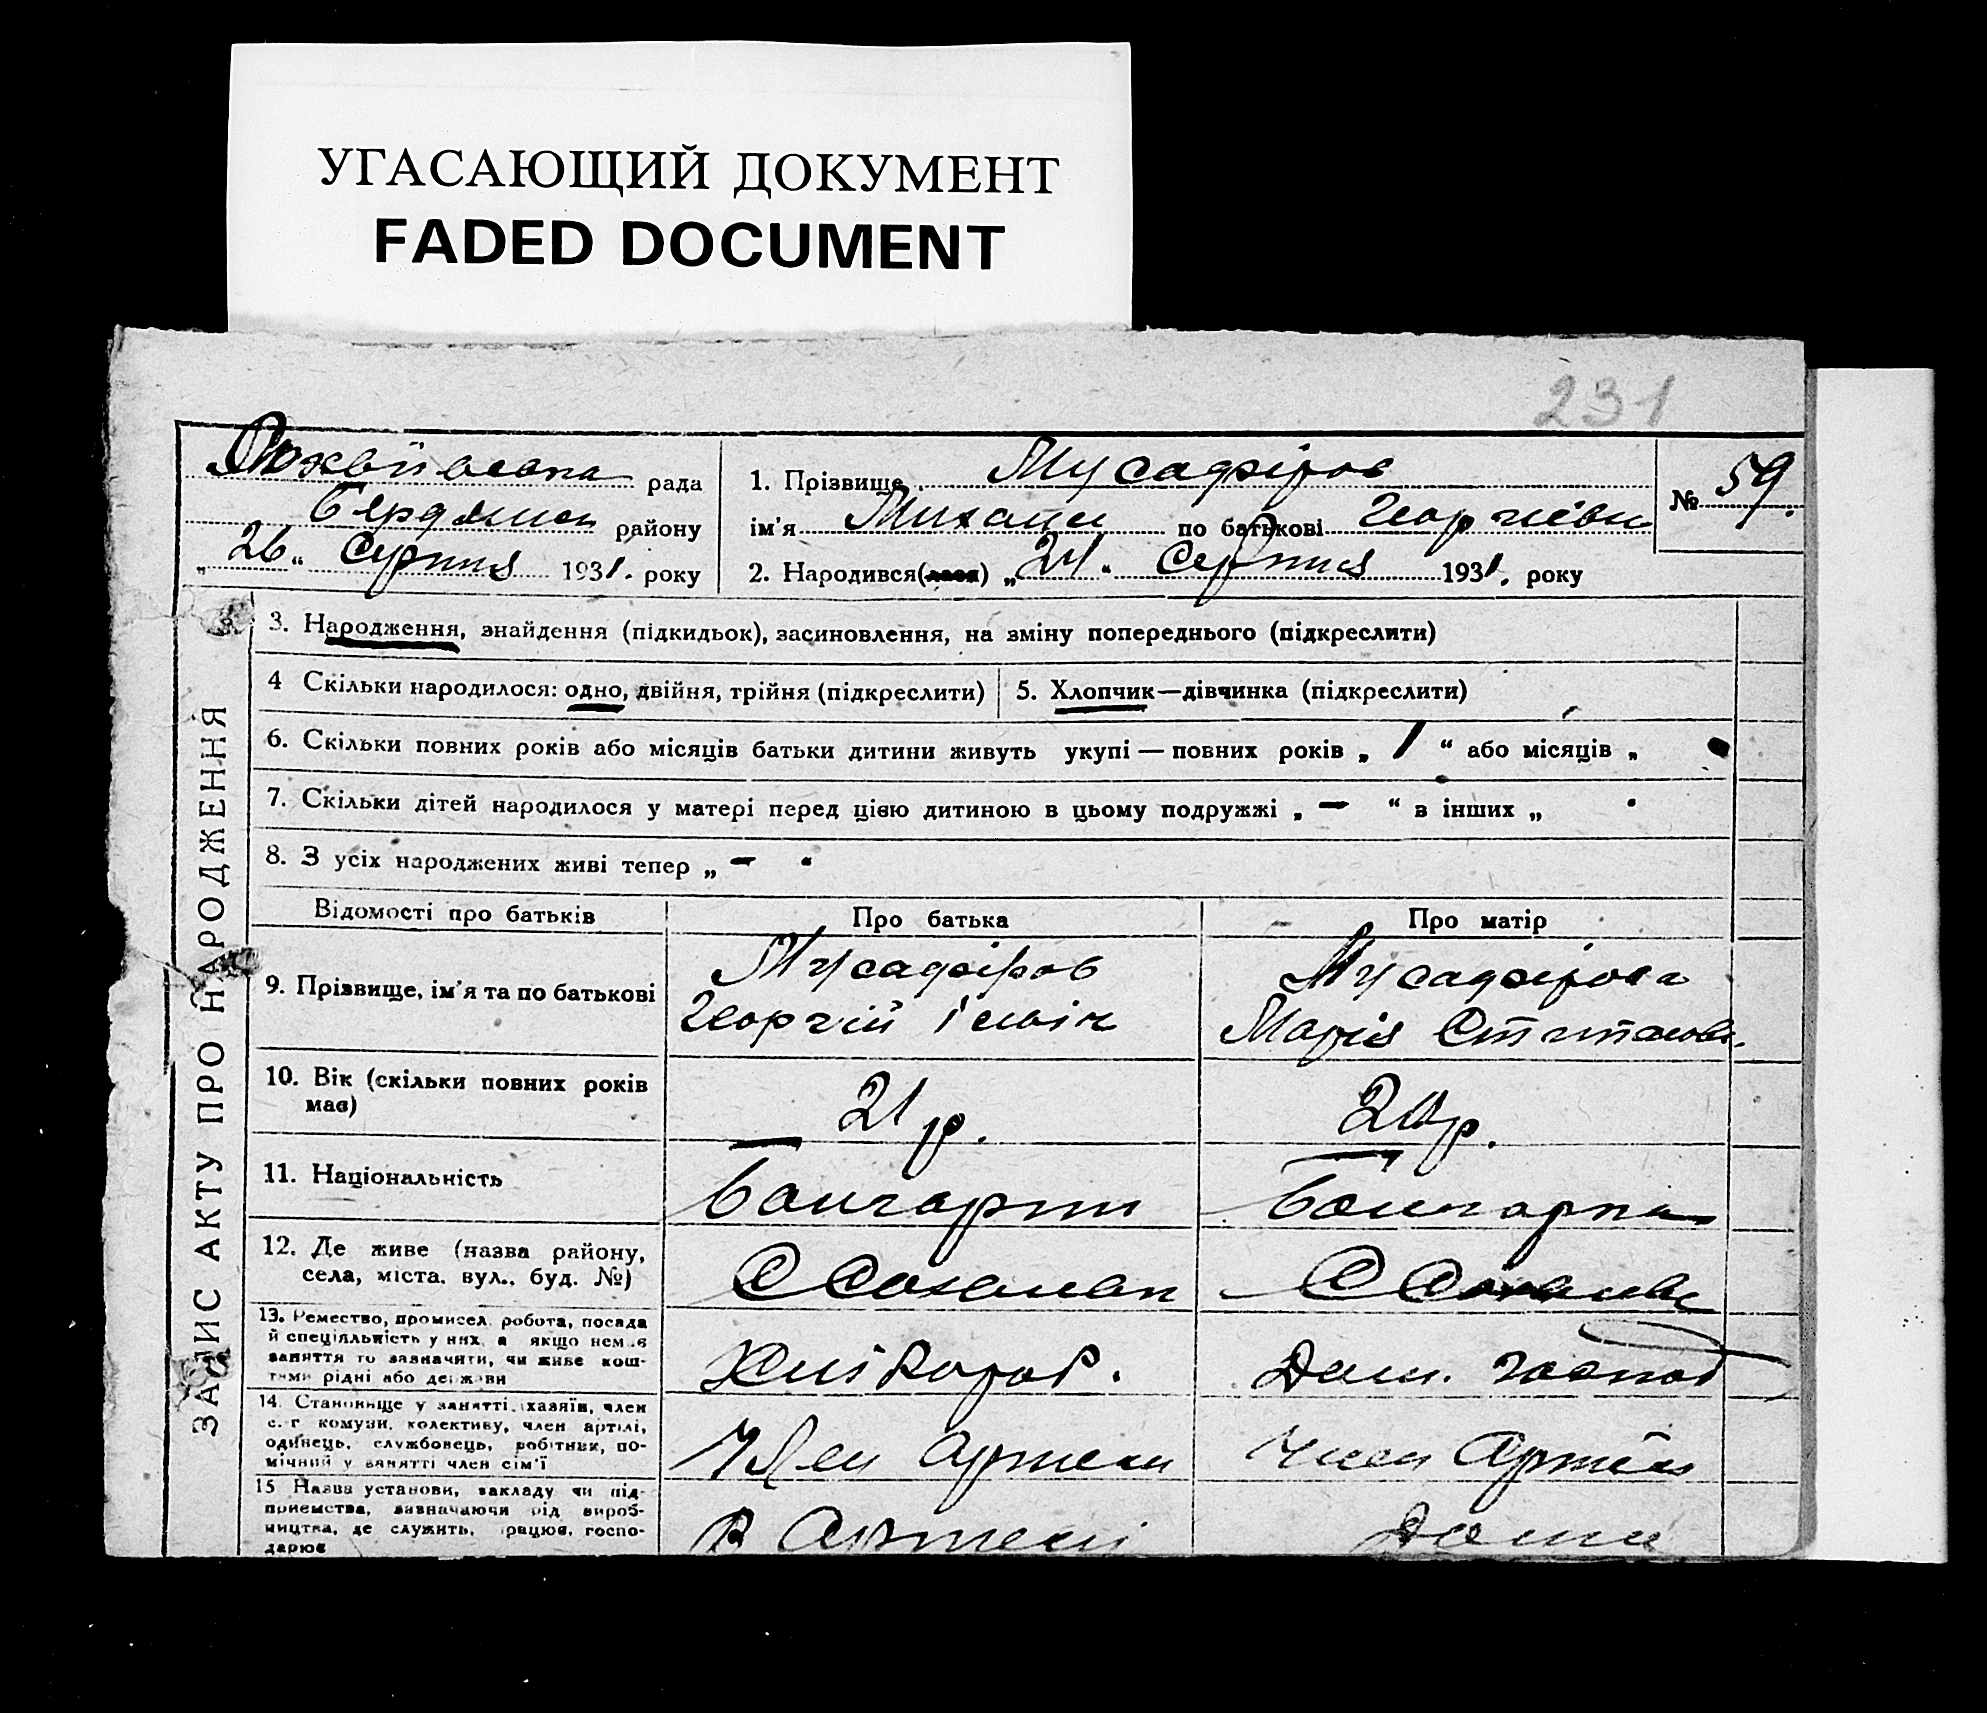 УГАСАЮЩИЙ ДОКУМЕНТ
FADED DOCUMENT
231
рада
району
„26“ Серпня 1931. року
1. Прізвище Мусафіров
ім'я Михайл по батькові Георгієвич
2. Народився(лася) „24“ Серпня 1931. року
№ 59.
ЗАПИС АКТУ ПРО НАРОДЖЕННЯ
3. Народження, знайдення (підкидьок), засиновлення, на зміну попереднього (підкреслити)
4 Скільки народилося: одно, двійня, трійня (підкреслити)
5. Хлопчик—дівчинка (підкреслити)
6. Скільки повних років або місяців батьки дитини живуть укупі — повних років „ 1 “ або місяців „
7. Скільки дітей народилося у матері перед цією дитиною в цьому подружжі „ — “ в інших „
8. З усіх народжених живі тепер „ — “
Відомості про батьків
Про батька
Про матір
9. Прізвище, ім'я та по батькові
Мусафіров
Георгій Ілліч
Мусафірова
Марія
10. Вік (скільки повних років
має)
21 р.
20 р.
11. Національність
Болгарин
Болгарка
12. Де живе (назва району,
села, міста, вул., буд. №)
С
С
13. Ремество, промисел, робота, посада
й спеціяльність у них, а якщо немає
заняття то зазначити, чи живе кош-
тами рідні або держави
Хлібороб.
Дом. господ
14. Становище у занятті, хазяїн, член
с.-г комуни, колективу, член артілі,
одинець, службовець, робітник, по-
мічний у занятті член сім'ї
Член Артели
Член Артели
15 Назва установи, закладу чи під-
приемства, зазначаючи рід вироб-
ництва, де служить, працює, госпо-
дарює
В Артелі
Дома